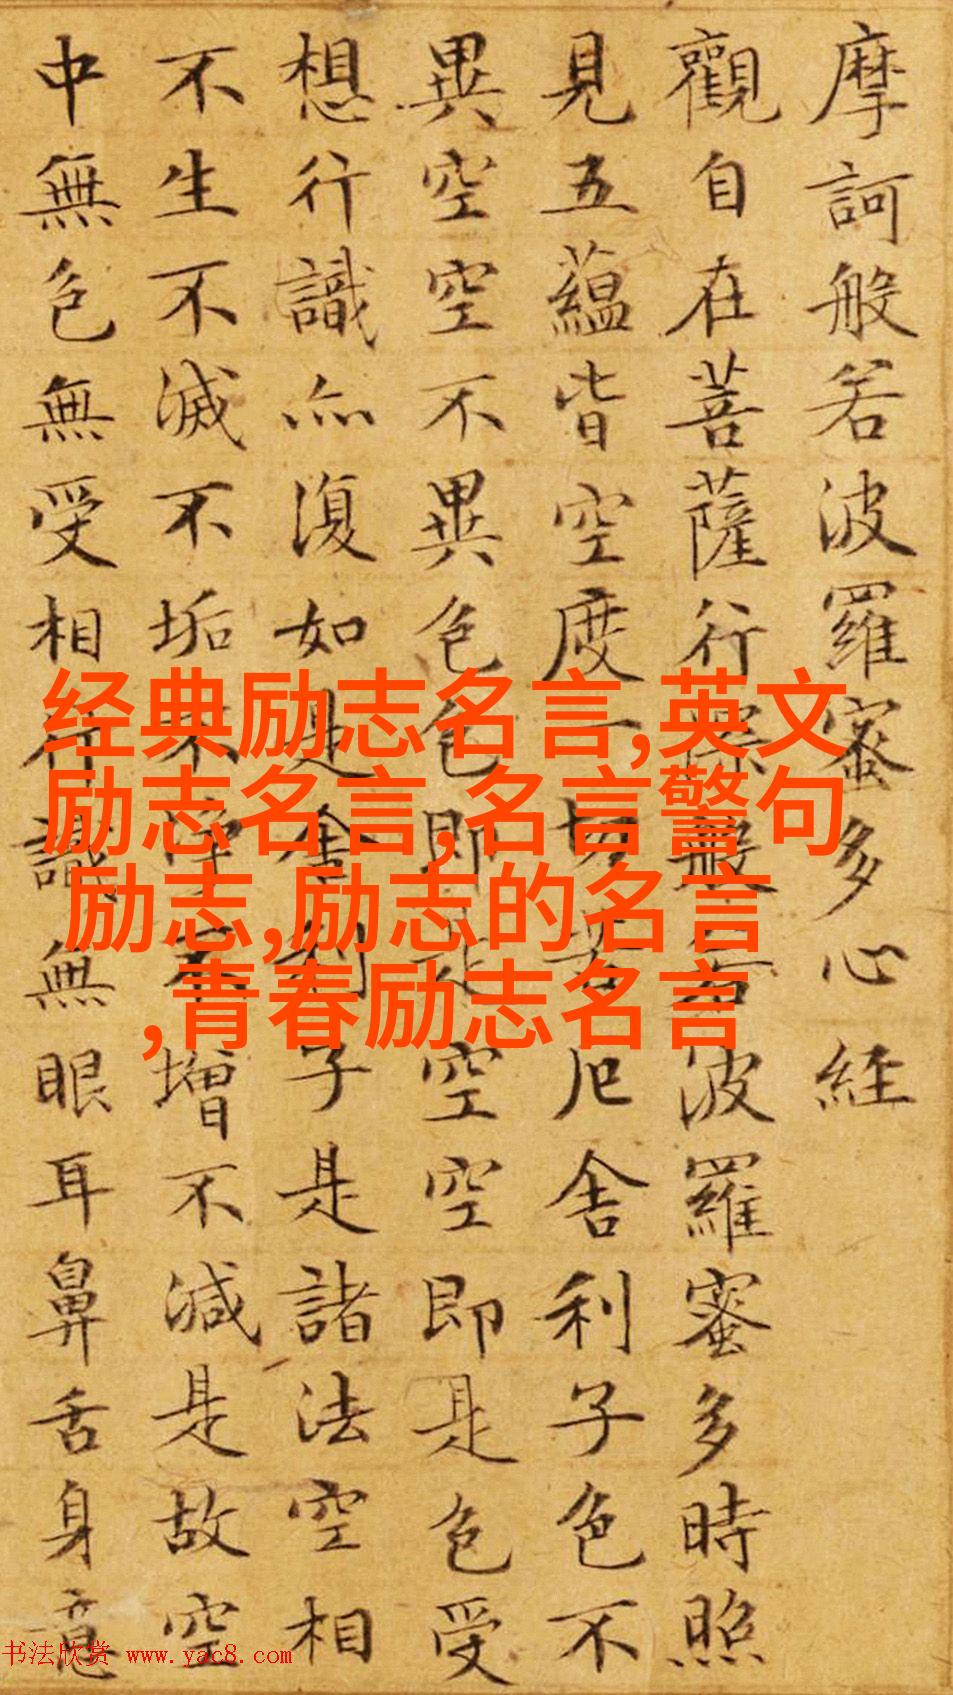 摩訶般若波羅蜜多心經
觀自在菩薩行深般若波羅蜜多時照
見五蘊皆空度一切苦厄舍利子色不
異空空不異色色即是空空即是色受
想行識亦復如是舍利子是諸法空相
不生不滅不垢不淨不增不減是故空
中無色無受相行識無眼耳鼻舌身意
经典励志名言,英文
励志名言,名言警句
励志,励志的名言
,青春励志名言
书法欣赏 www.yac8.com